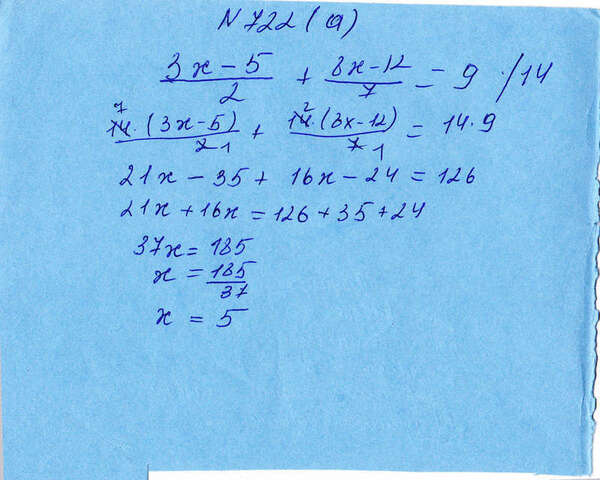 N 722 (а)
3x - 5/2 + 8x - 12/7 = 9 /14
7 14·(3x-5)/2 1 + 2 14·(8x-12)/7 1 = 14·9
21x - 35 + 16x - 24 = 126
21x + 16x = 126 + 35 + 24
37x = 185
x = 185/37
x = 5